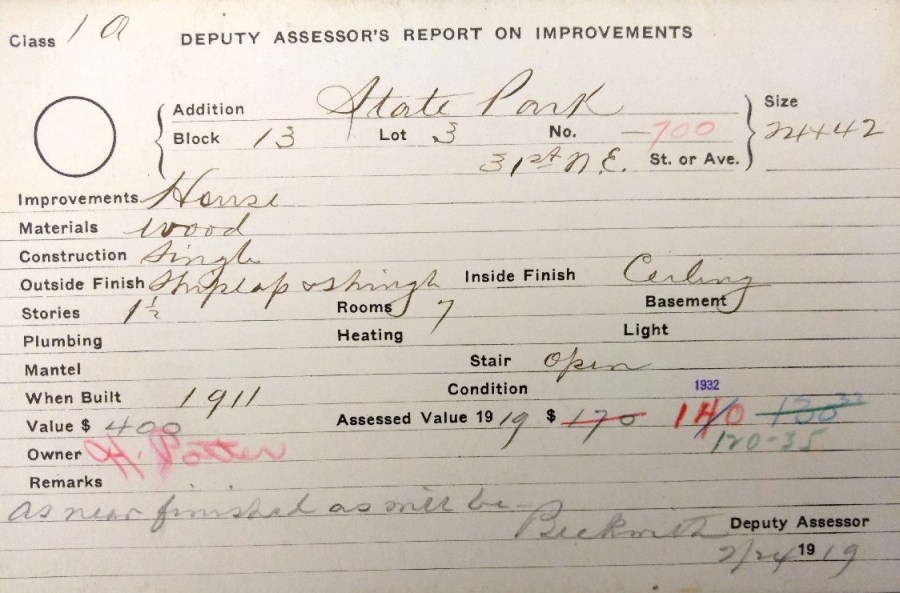 Class 1 a DEPUTY ASSESSOR'S REPORT ON IMPROVEMENTS
Addition State Park Size
Block 13 Lot 3 No. —700 24x42
31st N.E. St. or Ave.
Improvements House
Materials wood
Construction Single
Outside Finish Shiplap & Shingle Inside Finish Ceiling
Stories 1½ Rooms 7 Basement
Plumbing Heating Light
Mantel Stair open
When Built 1911 Condition 1932
Value $ 400 Assessed Value 19 19 $ 170 140 130 32
120-35
Owner H. Potter
Remarks
as near finished as will be—
Beckwith Deputy Assessor
2/24 19 19